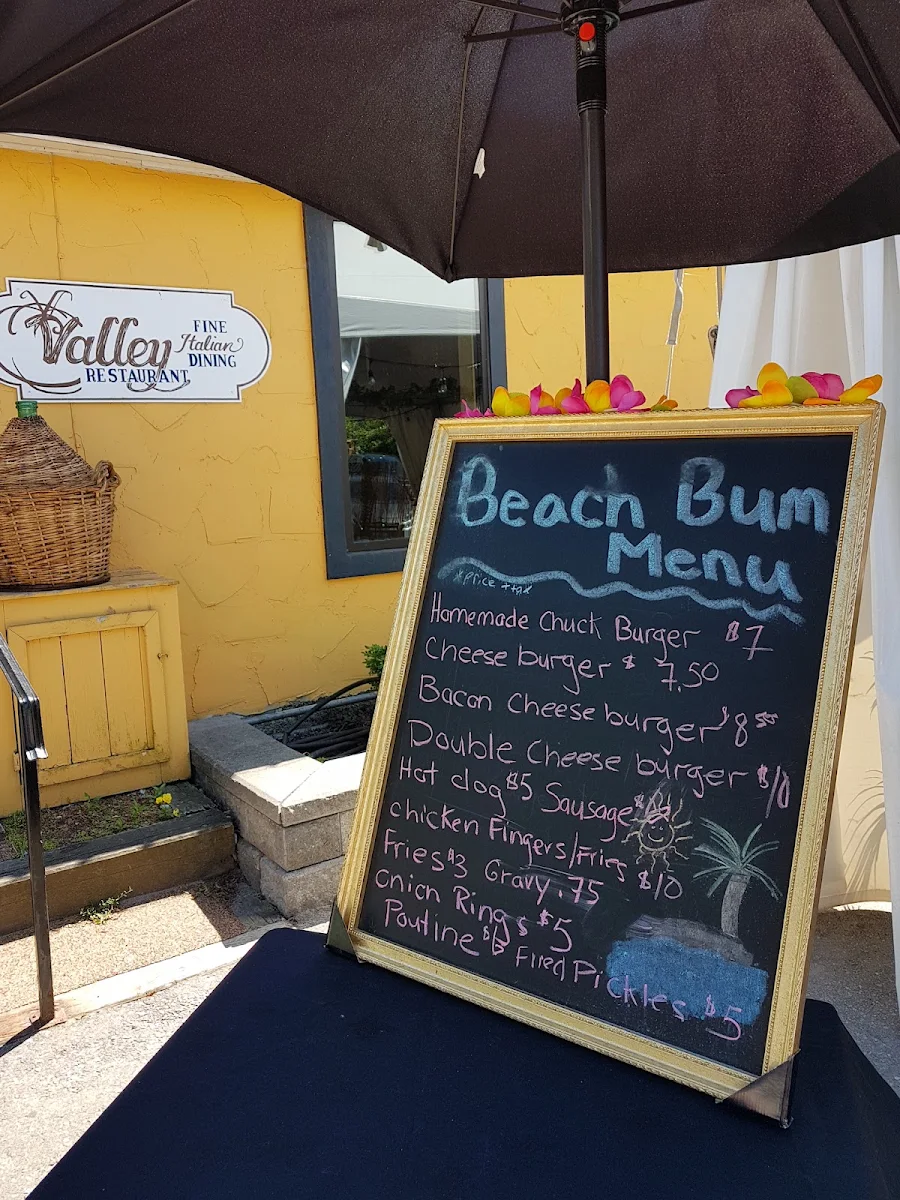 Valley
FINE
Italian
DINING
RESTAURANT
Beach Bum
Menu
*price + tax
Homemade Chuck Burger $7
Cheese burger $ 7.50
Bacon Cheese burger $8.50
Double Cheese burger $10
Hot dog $5 Sausage
chicken Fingers/Fries $10
Fries $3 Gravy .75
Onion Rings $5
Poutine Fired Pickles $5